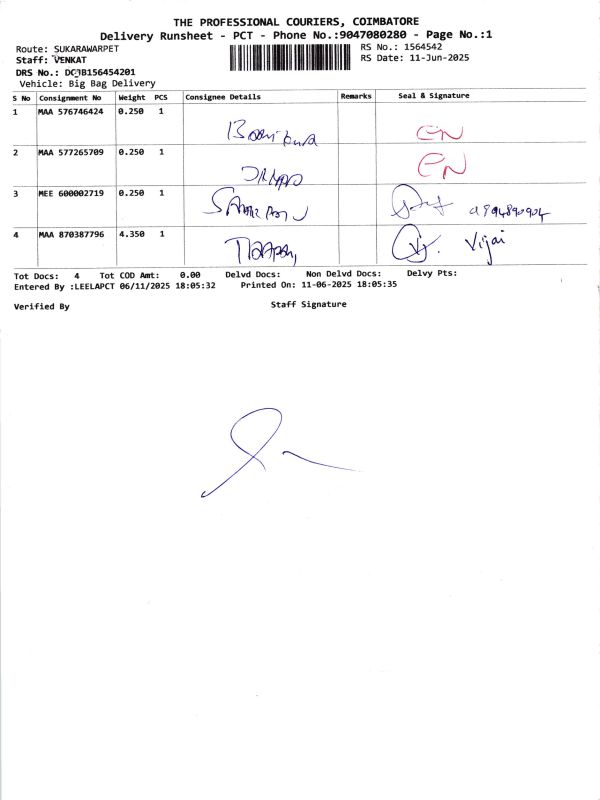 THE PROFESSIONAL COURIERS, COIMBATORE
Delivery Runsheet - PCT - Phone No.:9047080280 - Page No.:1
Route: SUKARAWARPET RS No.: 1564542
Staff: VENKAT RS Date: 11-Jun-2025
DRS No.:
Vehicle: Big Bag Delivery
S No Consignment No Weight PCS Consignee Details Remarks Seal & Signature
1 MAA 576746424 0.250 1
2 MAA 577265709 0.250 1
3 MEE 600002719 0.250 1
4 MAA 870387796 4.350 1 Vijai
Tot Docs: 4 Tot COD Amt: 0.00 Delvd Docs: Non Delvd Docs: Delvy Pts:
Entered By :LEELAPCT 06/11/2025 18:05:32 Printed On: 11-06-2025 18:05:35
Verified By Staff Signature